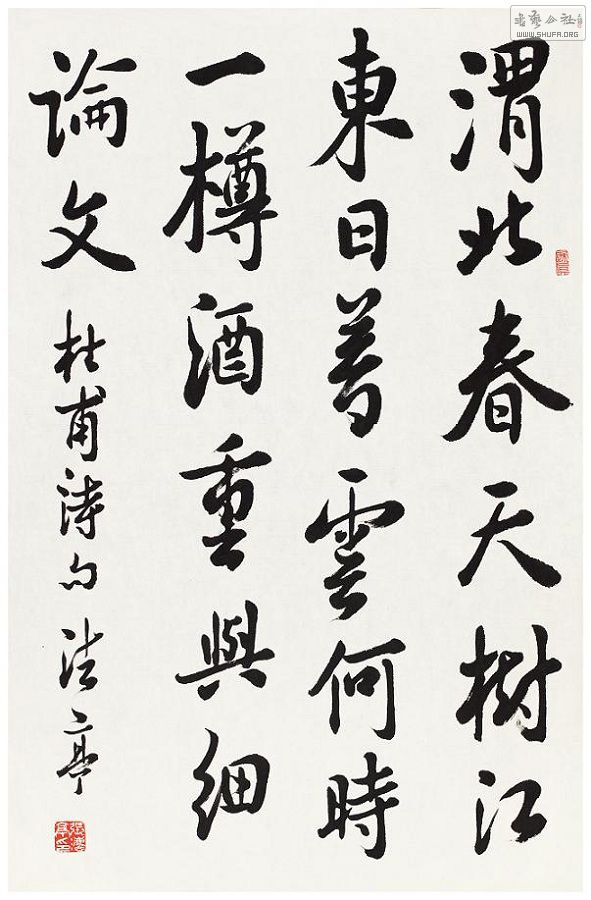 渭北春天樹江
東日暮雲何時
一樽酒重與細
論文 杜甫詩句 法亭
書藝公社
WWW.SHUFA.ORG